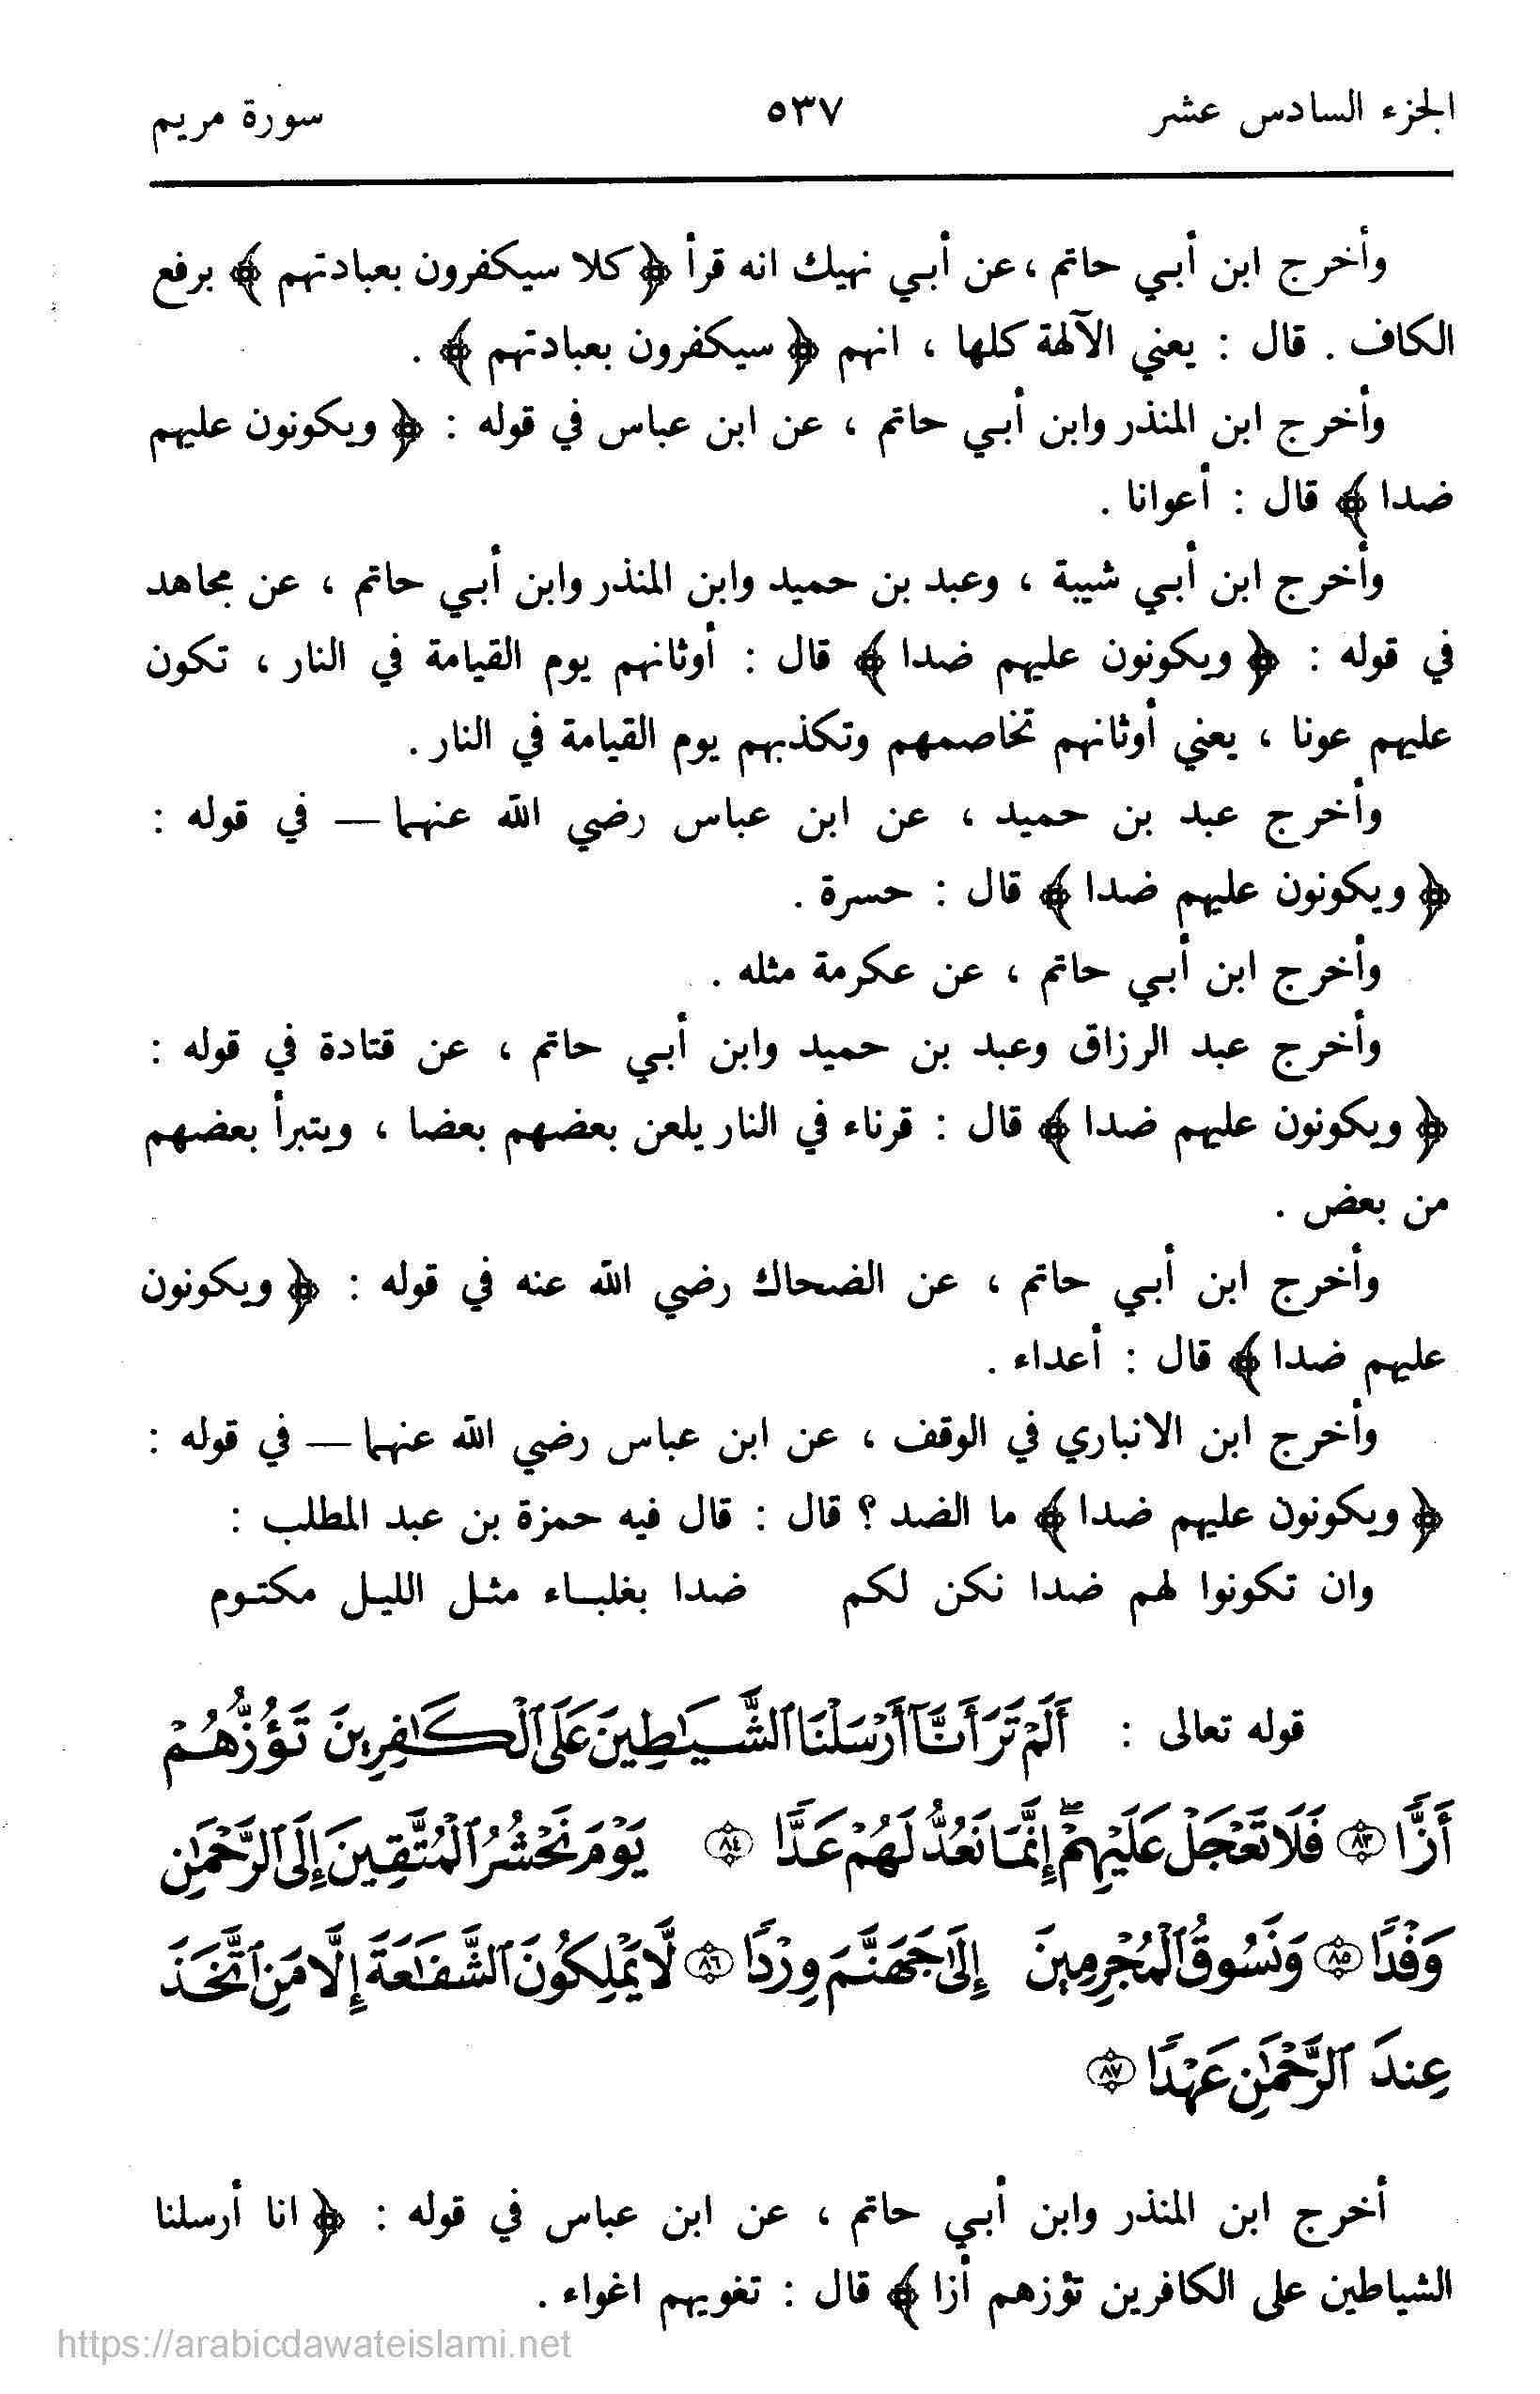 الجزء السادس عشر ٥٣٧ سورة مريم
وأخرج ابن أبي حاتم ، عن أبي نهيك انه قرأ ﴿ كلا سيكفرون بعبادتهم ﴾ برفع
الكاف . قال : يعني الآلهة كلها ، انهم ﴿ سيكفرون بعبادتهم ﴾ .
وأخرج ابن المنذر وابن أبي حاتم ، عن ابن عباس في قوله : ﴿ ويكونون عليهم
ضدا ﴾ قال : أعوانا .
وأخرج ابن أبي شيبة ، وعبد بن حميد وابن المنذر وابن أبي حاتم ، عن مجاهد
في قوله : ﴿ ويكونون عليهم ضدا ﴾ قال : أوثانهم يوم القيامة في النار ، تكون
عليهم عونا ، يعني أوثانهم تخاصمهم وتكذبهم يوم القيامة في النار .
وأخرج عبد بن حميد ، عن ابن عباس رضي الله عنهما — في قوله :
﴿ ويكونون عليهم ضدا ﴾ قال : حسرة .
وأخرج ابن أبي حاتم ، عن عكرمة مثله .
وأخرج عبد الرزاق وعبد بن حميد وابن أبي حاتم ، عن قتادة في قوله :
﴿ ويكونون عليهم ضدا ﴾ قال : قرناء في النار يلعن بعضهم بعضا ، ويتبرأ بعضهم
من بعض .
وأخرج ابن أبي حاتم ، عن الضحاك رضي الله عنه في قوله : ﴿ ويكونون
عليهم ضدا ﴾ قال : أعداء .
وأخرج ابن الانباري في الوقف ، عن ابن عباس رضي الله عنهما — في قوله :
﴿ ويكونون عليهم ضدا ﴾ ما الضد ؟ قال : قال فيه حمزة بن عبد المطلب :
وان تكونوا لهم ضدا نكن لكم ضدا بغلبـاء مثـل الليـل مكتـوم
قوله تعالى : أَلَمْ تَرَ أَنَّآ أَرْسَلْنَا ٱلشَّيَٰطِينَ عَلَى ٱلْكَٰفِرِينَ تَؤُزُّهُمْ
أَزًّا ﴿٨٣﴾ فَلَا تَعْجَلْ عَلَيْهِمْ ۖ إِنَّمَا نَعُدُّ لَهُمْ عَدًّا ﴿٨٤﴾ يَوْمَ نَحْشُرُ ٱلْمُتَّقِينَ إِلَى ٱلرَّحْمَٰنِ
وَفْدًا ﴿٨٥﴾ وَنَسُوقُ ٱلْمُجْرِمِينَ إِلَىٰ جَهَنَّمَ وِرْدًا ﴿٨٦﴾ لَّا يَمْلِكُونَ ٱلشَّفَٰعَةَ إِلَّا مَنِ ٱتَّخَذَ
عِندَ ٱلرَّحْمَٰنِ عَهْدًا ﴿٨٧﴾
أخرج ابن المنذر وابن أبي حاتم ، عن ابن عباس في قوله : ﴿ انا أرسلنا
الشياطين على الكافرين تؤزهم أزا ﴾ قال : تغويهم اغواء .
https://arabicdawateislami.net